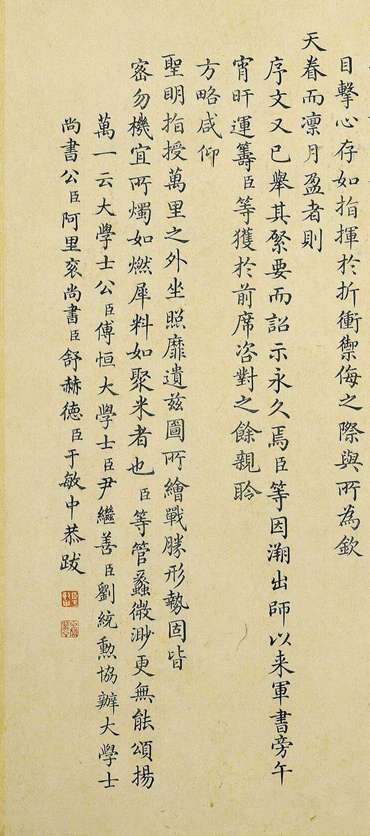 目擊心存如指揮於折衝禦侮之際與所為欽
天眷而凜月盈者則
序文又已舉其綮要而詔示永久焉臣等因溯出師以来軍書旁午
宵旰運籌臣等獲於前席咨對之餘親聆
方略咸仰
聖明指授萬里之外坐照靡遺兹圖所繪戰勝形勢固皆
密勿機宜所燭如燃犀料如聚米者也臣等管蠡微渺更無能頌揚
萬一云大學士公臣傅恒大學士臣尹繼善臣劉統勳協辦大學士
尚書公臣阿里袞尚書臣舒赫德臣于敏中恭跋